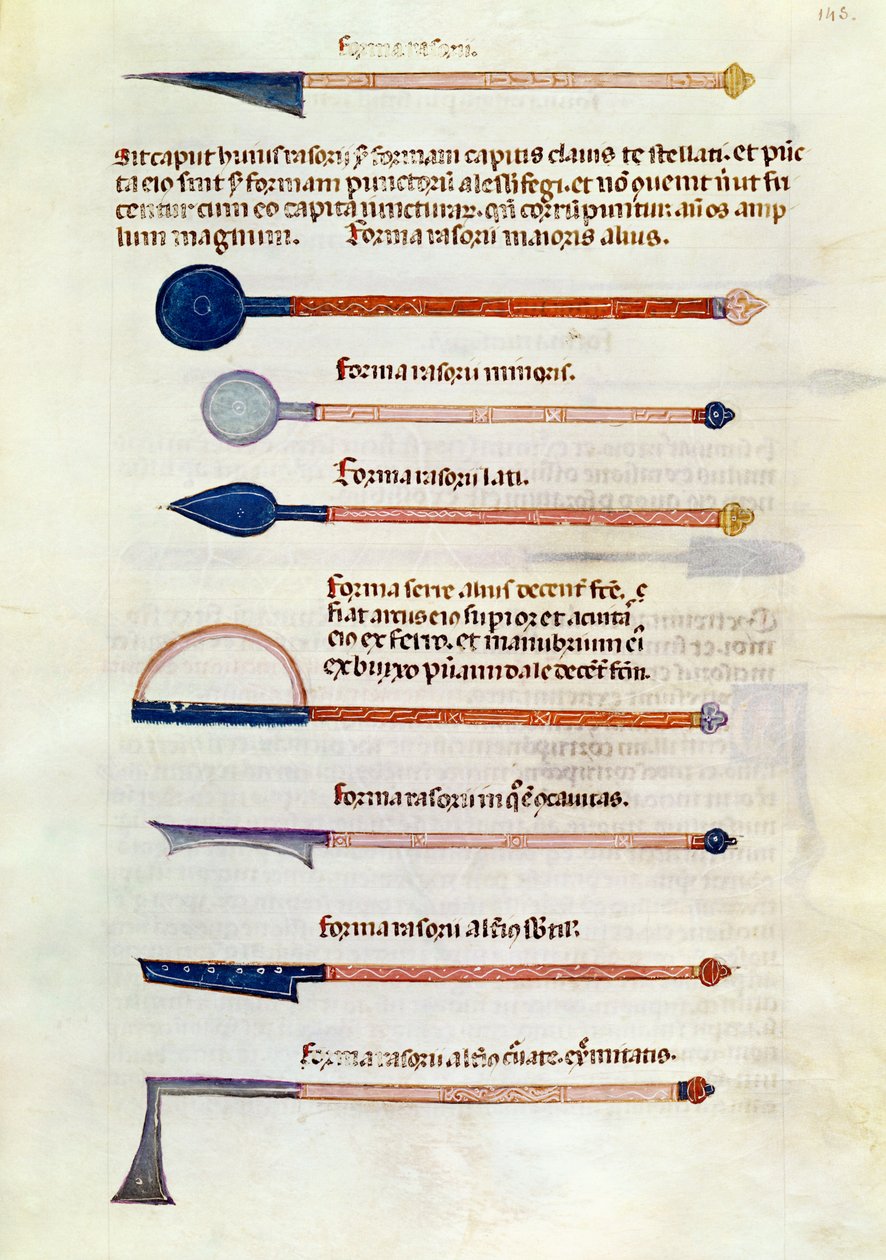 143.
Forma rasorii.
Sit caput huius rasorii ꝑ formam capitis clauis stellati. et pūc
ta eiꝰ sint ꝑ formam punctorū aleslifegi. et nō ꝯuenit ut fri
centur cum eo capita iuncturaꝝ. os amp
lum magnum. Forma rasorii maioris alius.
Forma rasorii minoris.
Forma rasorii lati.
Forma serre alius decent̄ fc̄e. ꝙ
fiat arcus eiꝰ supior et acuitā
eiꝰ ex ferro. et manubrium eiꝰ
ex buxo decēt̄
Forma rasorii in q̊ ē ꝯcauitas.
Forma rasorii alt̄iꝰ sb̄til̓.
Forma rasorii alt̄iꝰ cūate. ext̄mitatis.